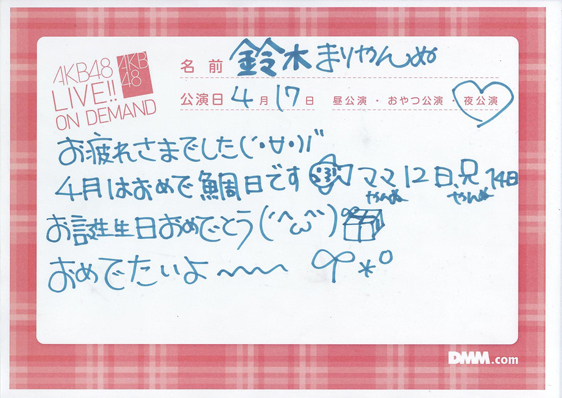 AKB48
LIVE!!
ON DEMAND
AKB
48
名前 鈴木まりやんぬ
公演日 4月17日 昼公演・おやつ公演・夜公演
お疲れさまでした(´・∀・)ﾉﾞ
4月はおめで鯛日です ママ12日、兄14日
やんぬ やんぬ
お誕生日おめでとう(´^ω^`)
おめでたいよ〜〜〜 *°
DMM.com